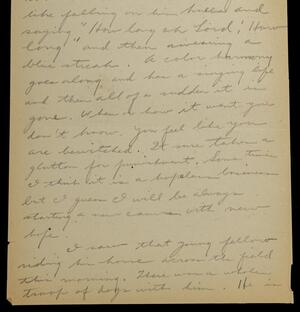 like falling on his knees and
saying "How long oh Lord, How
long" and then swearing a
blue streak. A color harmony
goes along and has a singing life
and then all of a sudden it is
gone. When or how it went you
don't know. You feel like you
are bewitched. It sure takes a
glutton for punishment. Sometimes
I think it is a hopeless business
but I guess I will be always
starting a new canvas with new
hope.
I saw that young fellow
riding his horse across the field
this morning. There was a whole
troop of dogs with him. He is